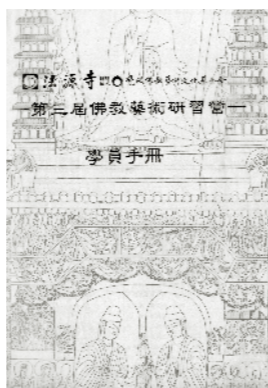 法源寺
第三屆佛教藝術研習營
學員手冊